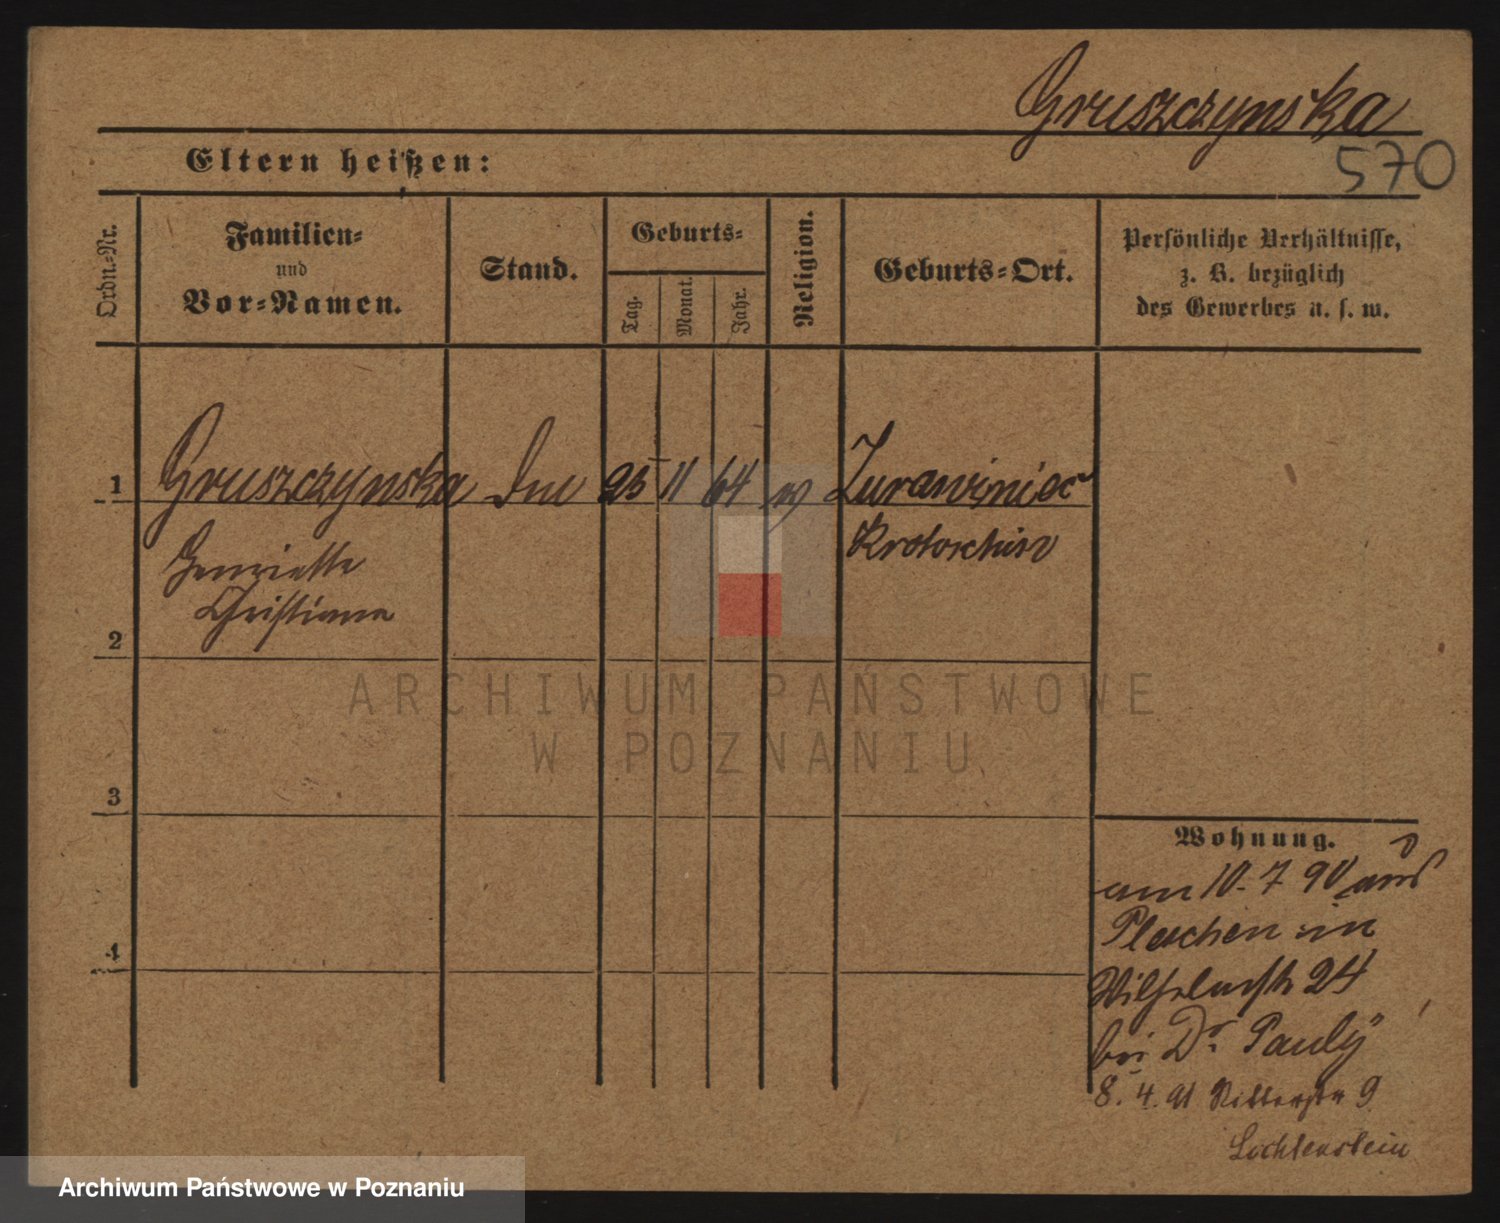 Gruszczynska
570
Eltern heißen:
Ordn.-Nr.
Familien-
und
Vor-Namen.
Stand.
Geburts-
Tag.
Monat.
Jahr.
Religion.
Geburts-Ort.
Persönliche Verhältnisse,
z. B. bezüglich
des Gewerbes u. s. w.
1 Gruszczynska 25 11 64 Zurawiniec
Krotoschin
Henriette
Christiane
2
3
4
Wohnung.
am 10. 7 90 aus
Pleschen in
Wilhelmstr 24
bei Dr. Pauly
8. 4. 91 Ritterstr 9
Lichtenstein
ARCHIWUM PAŃSTWOWE
W POZNANIU
Archiwum Państwowe w Poznaniu